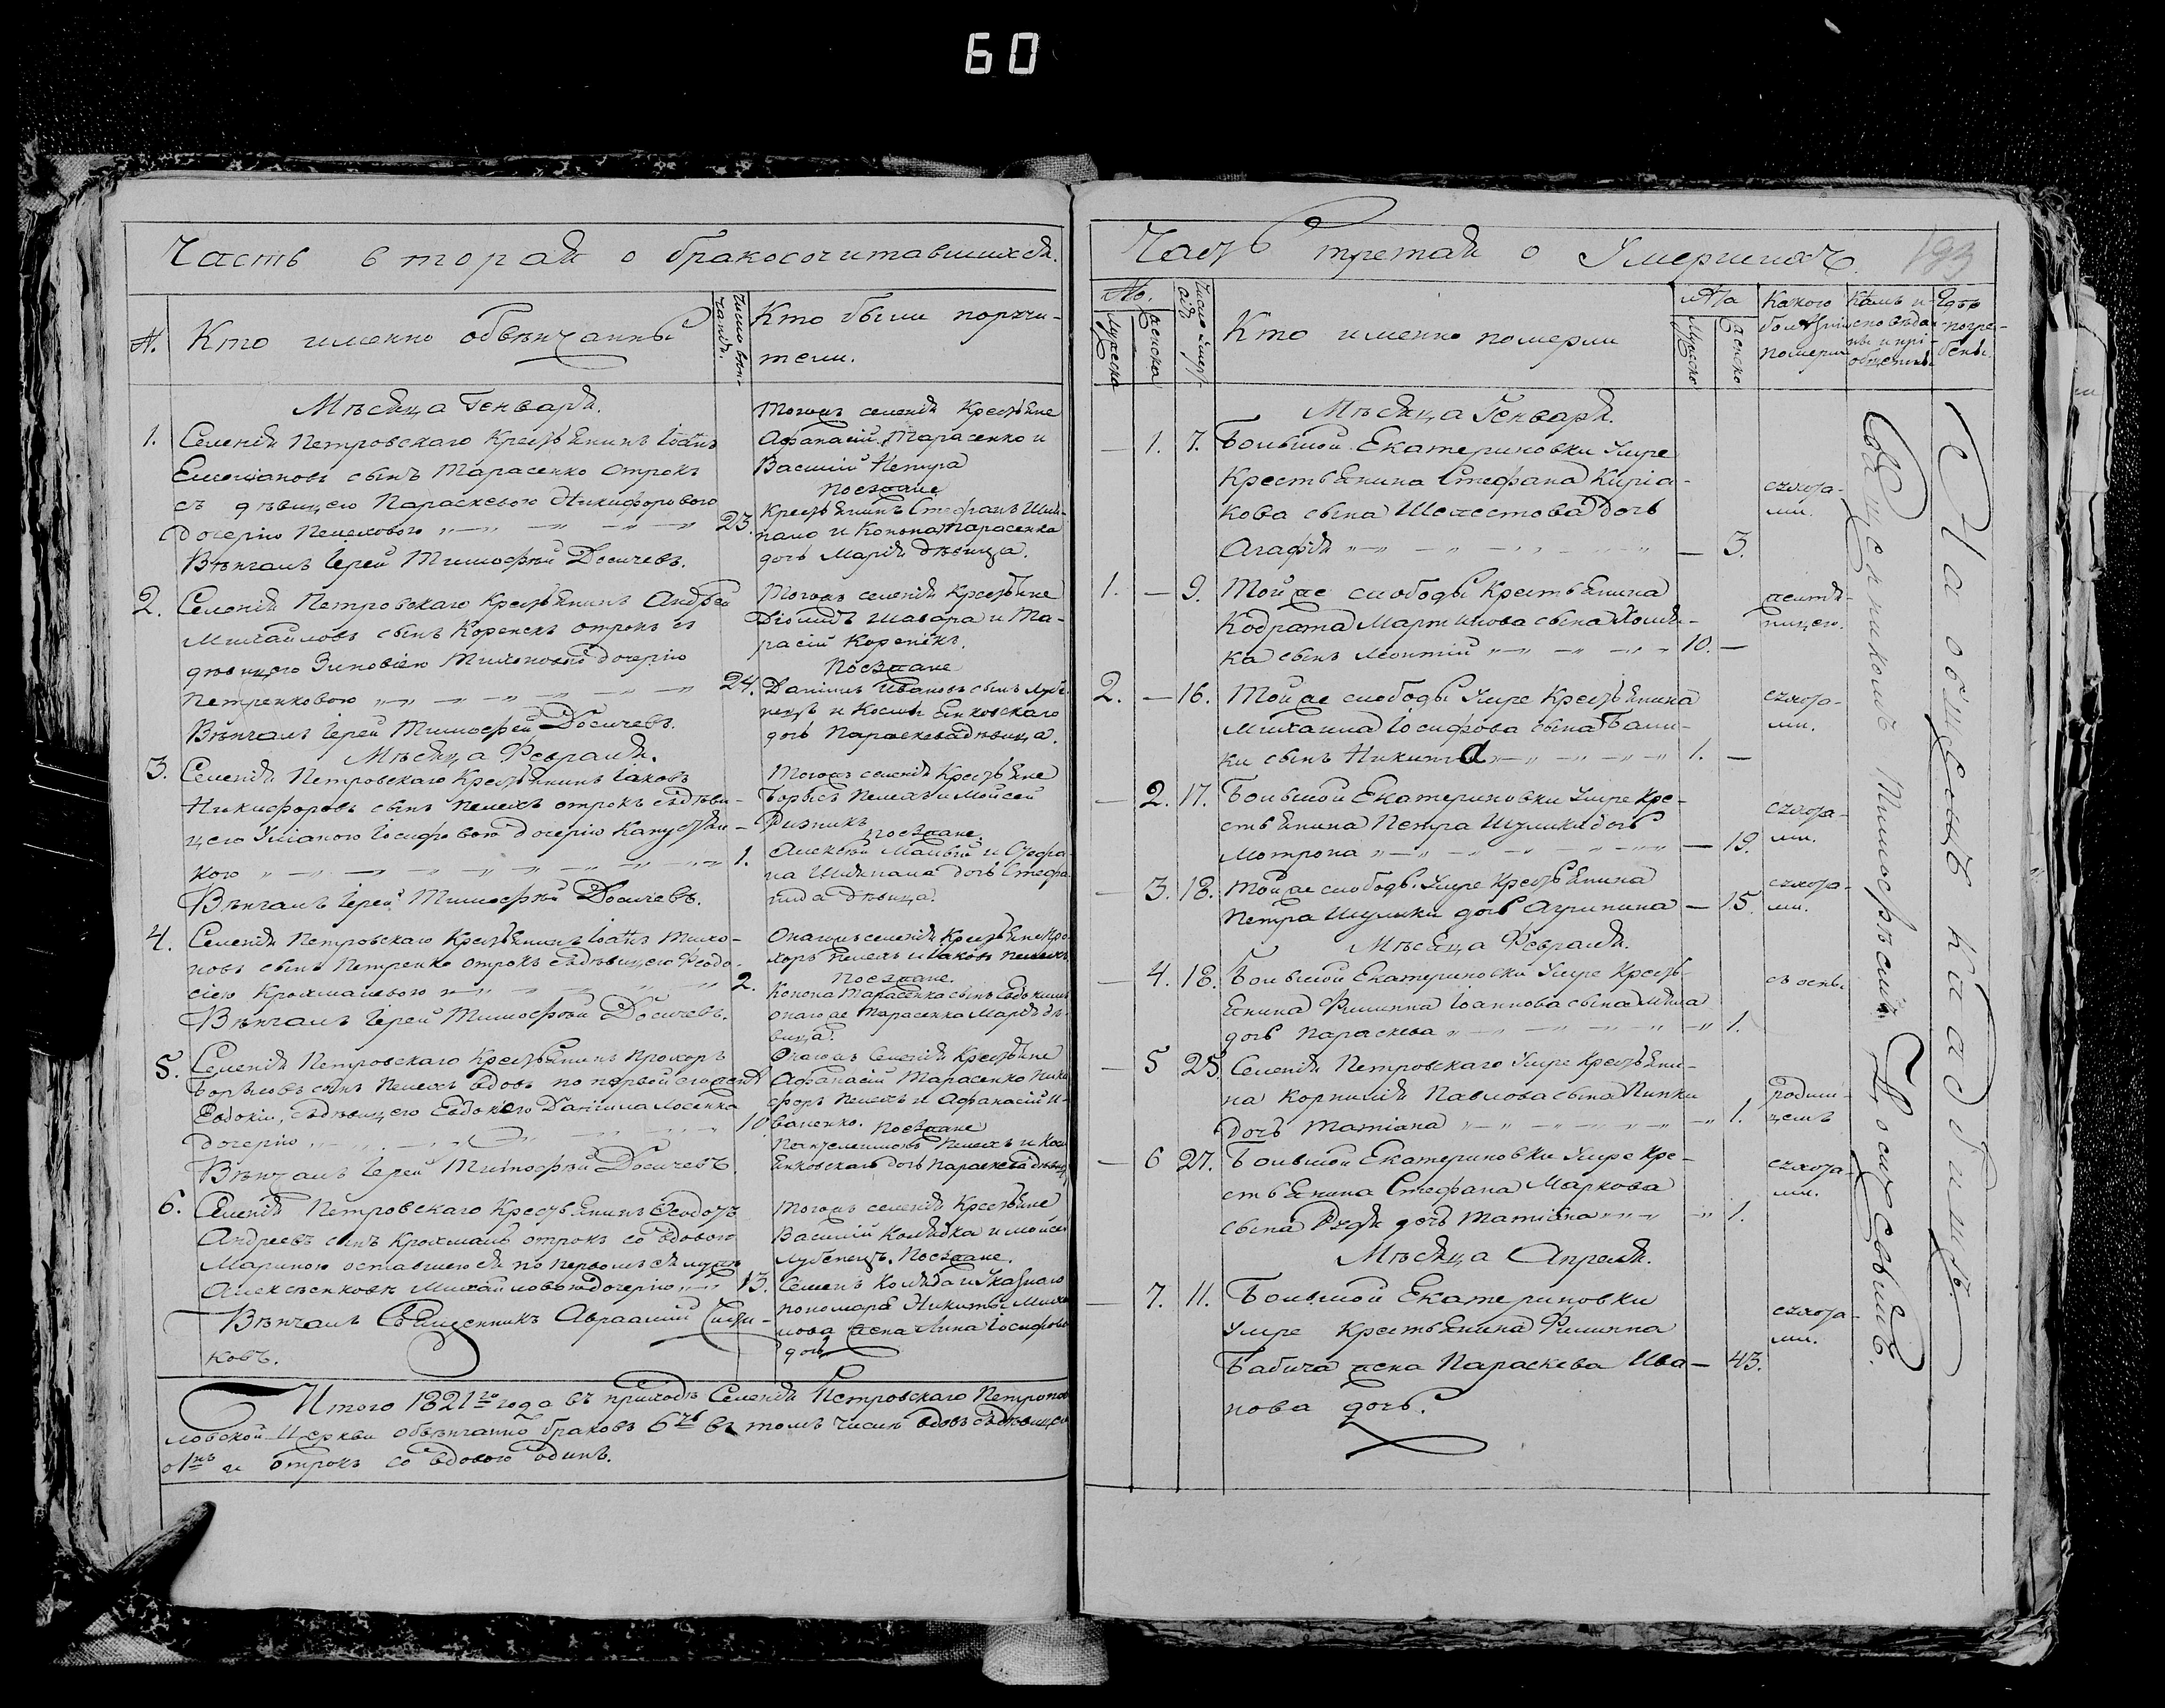 60
Часть вторая о бракосочитавшихся.
№. Кто именно обвѣнчанны
Число вѣн-
чанія.
Кто были поручи-
тели.
Мѣсяца Генваря.
1. Селенія Петровскаго Крестьянинъ Іоаннъ
Емеліановъ сынъ Тарасенко отрокъ
съ дѣвицею Параскевою Никифоровою
дочерію Пелеховою 23.
Вѣнчалъ Іерей Тимофѣй Досичевъ.
Тогожъ селенія Крестьяне
Афанасій Тарасенко и
Василій
Поезжане
Крестьянинъ Стефанъ
и Конона Тарасенка
дочь Марія дѣвица.
2. Селенія Петровскаго Крестьянинъ Андрей
Михайловъ сынъ отрокъ съ
дѣвицею Зиновіею Тихоновою дочерію
Петренковою 24.
Вѣнчалъ Іерей Тимофей Досичевъ.
Тогожъ селенія Крестьяне
Діомидъ Шавара и Та-
расій Кореникъ.
Поезжане
Даніилъ Ивановъ сынъ
и Космы Енковскаго
дочь Параскева дѣвица.
Мѣсяца Февраля.
3. Селенія Петровскаго Крестьянинъ Іаковъ
Никифоровъ сынъ Пелехъ отрокъ съ дѣви-
цею Уліаною Іосифовою дочерію
кою 1.
Вѣнчалъ Іерей Тимофѣй Досичевъ.
Тогожъ селенія Крестьяне
Борисъ Пелехъ и Мойсей
Ризникъ
поезжане.
Алексѣй Малый и Стефа-
на дочь Стефа-
нида дѣвица.
4. Селенія Петровскаго Крестьянинъ Іоаннъ Тихо-
новъ сынъ Петренко отрокъ съ дѣвицею Феодо-
сіею Крохмалевою 2.
Вѣнчалъ Іерей Тимофѣй Досичевъ.
Онагожъ селенія Крестьяне Про-
хоръ Пелехъ и Іаковъ Пелехъ
Поезжане.
Конона Тарасенка сынъ Евдокимъ
онагоже Тарасенка Марія дѣ-
вица.
5. Селенія Петровскаго Крестьянинъ Прохоръ
Борисовъ сынъ Пелехъ вдовъ по первой его женѣ
Евдокіи, съ дѣвицею Евдокіею Даніила Лосенка
дочерію 10
Вѣнчалъ Іерей Тимофѣй Досичевъ.
Онагожъ Селенія Крестьяне
Афанасій Тарасенко Ники-
форъ Пелехъ и Афанасій И-
ваненко. Поезжане
Пелехъ и
Енковскаго дочь Параскева дѣвица
6. Селенія Петровскаго Крестьянинъ Феодотъ
Андреевъ сынъ Крохмаль отрокъ со вдовою
Мариною оставшеюся по первомъ ея мужѣ
Алексѣенковѣ Михайловою дочерію 13.
Вѣнчалъ Священникъ Авраамій
ковъ.
Тогожъ селенія Крестьяне
Василій Колядка и Мойсей
Лубенецъ. Поезжане.
Семенъ Коляда и Указнаго
пономаря Никиты
жена Анна Іосифова
дочь
Итого 1821го года въ приходѣ Селенія Петровскаго Петропав
ловской Церкви обвѣнчанно браковъ 6ть въ томъ числѣ вдовъ съ дѣвицею
о1нъ и отрокъ со вдовою одинъ.
Часть третая о Умершихъ.
193
№.
Мужеска
женска
Число умер-
Кто именно померли
Лѣта
Мужеско
женско
Какого
болѣзнію
померли
Кѣмъ и-
сповѣда-
ны и прі-
общены
Гдѣ
погре-
бены.
Мѣсяца Генваря.
— 1. 7. Большой Екатериновки Умре
Крестьянина Стефана Киріа-
кова сына Шелестова дочь
Агафія — 3.
сухоta-
ми.
1. — 9. Тойже слободы Крестьянина
Кодрата Мартинова сына Холя-
ка сынъ Леонтій 10. —
желтя-
ницею.
2. — 16. Тойже слободы Умре Крестьянина
Михаила Іосифова сына Гали-
ки сынъ Никита 1. —
сухота-
ми.
— 2. 17. Большой Екатериновки Умре Кре-
стьянина Петра Шулики дочь
Мотрона — 19.
сухота-
ми.
— 3. 18. Тойже слободы Умре Крестьянина
Петра Шулики дочь Агрипина — 15.
сухота-
ми.
Мѣсяца Февраля.
— 4. 18. Большой Екатериновки Умре Кресть-
янина Филиппа Іоаннова сына
дочь Параскева 1.
съ оспы
— 5 25. Селенія Петровскаго Умре Крестьяни-
на Корнилія Павлова сына Пипки
Дочь Татіана 1.
родим-
цемъ
— 6 27. Большой Екатериновки Умре Кре-
стьянина Стефана Маркова
сына дочь Татіана 1.
сухота-
ми.
Мѣсяца Апреля.
— 7. 11. Большой Екатериновки
Умре Крестьянина Филиппа
Бабича жена Параскева Ива- — 43.
нова дочь.
сухота-
ми.
Священникомъ Тимофѣемъ Досичевымъ.
На общемъ кладбищѣ.